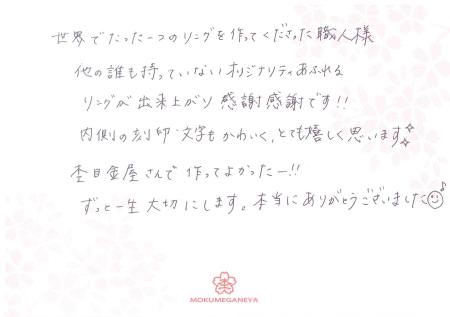 世界でたった一つのリングを作ってくださった職人様
他の誰も持っていないオリジナリティあふれる
リングが出来上がり感謝感謝です!!
内側の刻印・文字もかわいく、とても嬉しく思います
杢目金屋さんで作ってよかったー!!
ずっと一生大切にします。本当にありがとうございました
MOKUMEGANEYA